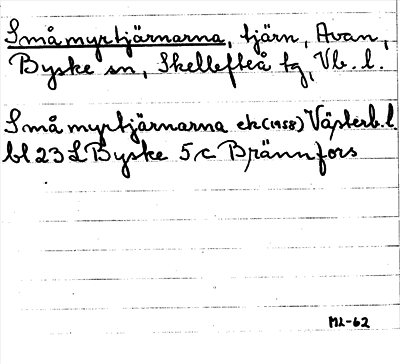 Småmyrtjärnarna, tjärn, Avan,
Byske sn, Skellefteå tg, Vb. l.
Småmyrtjärnarna ek (1958) Västerb. l.
bl 23 L Byske 5 c Brännfors
ML-62